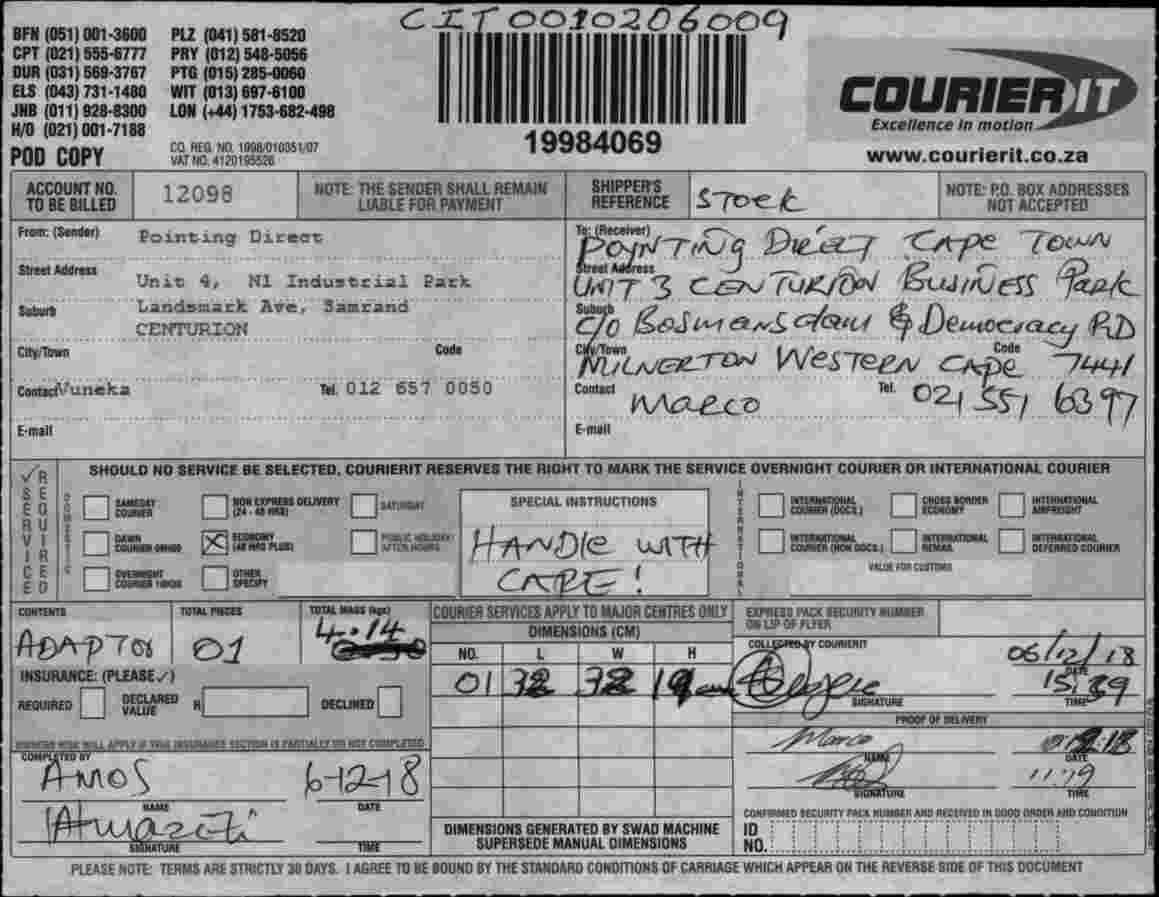 CIT0010206009
BFN (051) 001-3600 PLZ (041) 581-8520
CPT (021) 555-6777 PRY (012) 548-5056
DUR (031) 569-3767 PTG (015) 285-0060
ELS (043) 731-1480 WIT (013) 697-6100
JNB (011) 928-8300 LON (+44) 1753-682-498
H/O (021) 001-7188
POD COPY
CO. REG. NO. 1998/010351/07
VAT NO. 4120195526
19984069
COURIER IT
Excellence in motion
www.courierit.co.za
ACCOUNT NO. TO BE BILLED 12098
NOTE: THE SENDER SHALL REMAIN LIABLE FOR PAYMENT
SHIPPER'S REFERENCE STOCK
NOTE: P.O. BOX ADDRESSES NOT ACCEPTED
From: (Sender) Pointing Direct
Street Address Unit 4, N1 Industrial Park
Suburb Landsmark Ave, Samrand
CENTURION
City/Town Code
Contact Vuneka Tel. 012 657 0050
E-mail
To: (Receiver) POYNTING DIRECT CAPE TOWN
Street Address UNIT 3 CENTURION BUSINESS PARK
Suburb C/O Bosmansdam & Democracy RD
City/Town MILNERTON WESTERN CAPE Code 7441
Contact MARCO Tel. 021 551 6397
E-mail
SERVICE REQUIRED
SHOULD NO SERVICE BE SELECTED, COURIERIT RESERVES THE RIGHT TO MARK THE SERVICE OVERNIGHT COURIER OR INTERNATIONAL COURIER
DOMESTIC
SAMEDAY COURIER
NON EXPRESS DELIVERY (24 - 48 HRS)
SATURDAY
DAWN COURIER 09H00
ECONOMY (48 HRS PLUS)
PUBLIC HOLIDAY/ AFTER HOURS
OVERNIGHT COURIER 10H30
OTHER SPECIFY
SPECIAL INSTRUCTIONS
HANDLE WITH
CARE!
INTERNATIONAL
INTERNATIONAL COURIER (DOCS.)
CROSS BORDER ECONOMY
INTERNATIONAL AIRFREIGHT
INTERNATIONAL COURIER (NON DOCS.)
INTERNATIONAL REMAIL
INTERNATIONAL DEFERRED COURIER
VALUE FOR CUSTOMS
CONTENTS ADAPTOR
TOTAL PIECES 01
TOTAL MASS (kgs) 4.14
INSURANCE: (PLEASE ✓)
REQUIRED DECLARED VALUE R DECLINED
OWNERS RISK WILL APPLY IF THIS INSURANCE SECTION IS PARTIALLY OR NOT COMPLETED
COMPLETED BY
AMOS 6-12-18
NAME DATE
SIGNATURE TIME
COURIER SERVICES APPLY TO MAJOR CENTRES ONLY
DIMENSIONS (CM)
NO. L W H
01 32 32
DIMENSIONS GENERATED BY SWAD MACHINE
SUPERSEDE MANUAL DIMENSIONS
EXPRESS PACK SECURITY NUMBER
ON LIP OF FLYER
COLLECTED BY COURIERIT
06/12/18
DATE
15:39
SIGNATURE TIME
PROOF OF DELIVERY
Marco
NAME DATE
SIGNATURE TIME
CONFIRMED SECURITY PACK NUMBER AND RECEIVED IN GOOD ORDER AND CONDITION
ID NO.
PLEASE NOTE: TERMS ARE STRICTLY 30 DAYS. I AGREE TO BE BOUND BY THE STANDARD CONDITIONS OF CARRIAGE WHICH APPEAR ON THE REVERSE SIDE OF THIS DOCUMENT